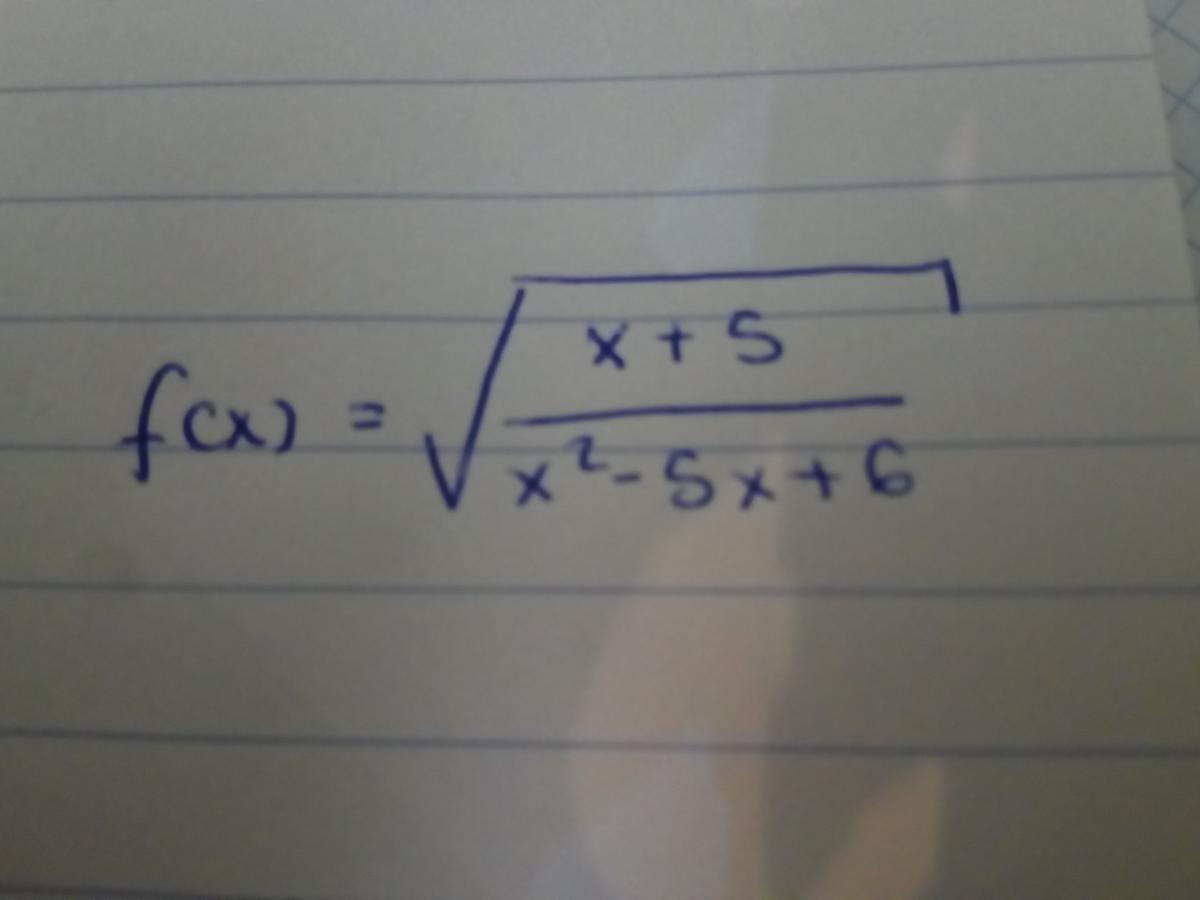 f(x) = √((x + 5)/(x² - 5x + 6))